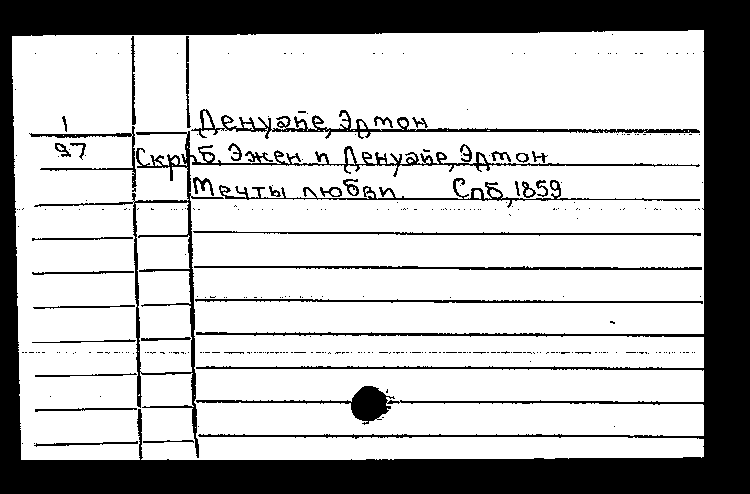 1 Денуайе, Эдмон
97 Скриб, Эжен и Денуайе, Эдмон
Мечты любви. Спб, 1859